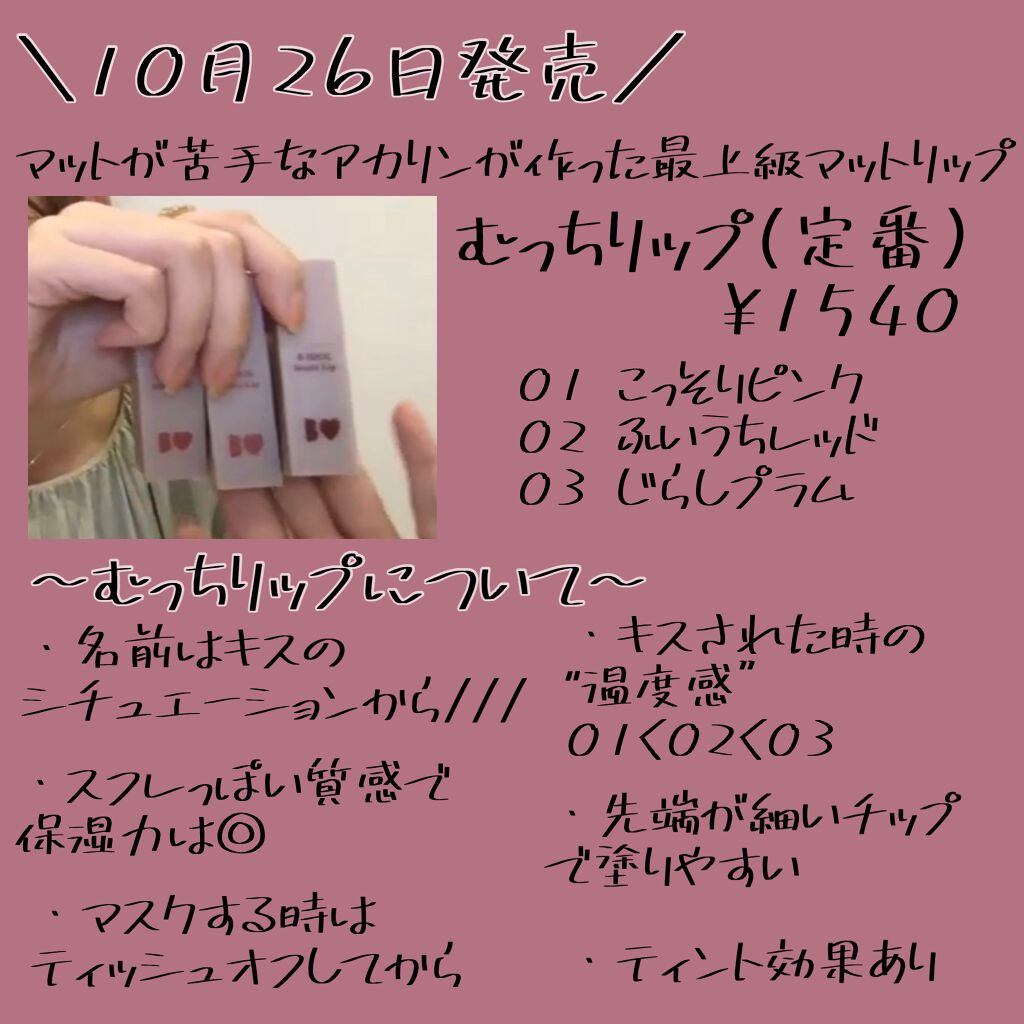 ＼10月26日発売／
マットが苦手なアカリンが作った最上級マットリップ
むっちリップ(定番)
¥1540
01 こっそりピンク
02 ふいうちレッド
03 じらしプラム
B IDOL
B
B
B
～むっちリップについて～
・名前はキスの
シチュエーションから///
・スフレっぽい質感で
保湿力は◎
・マスクする時は
ティッシュオフしてから
・キスされた時の
"温度感"
01<02<03
・先端が細いチップ
で塗りやすい
・ティント効果あり